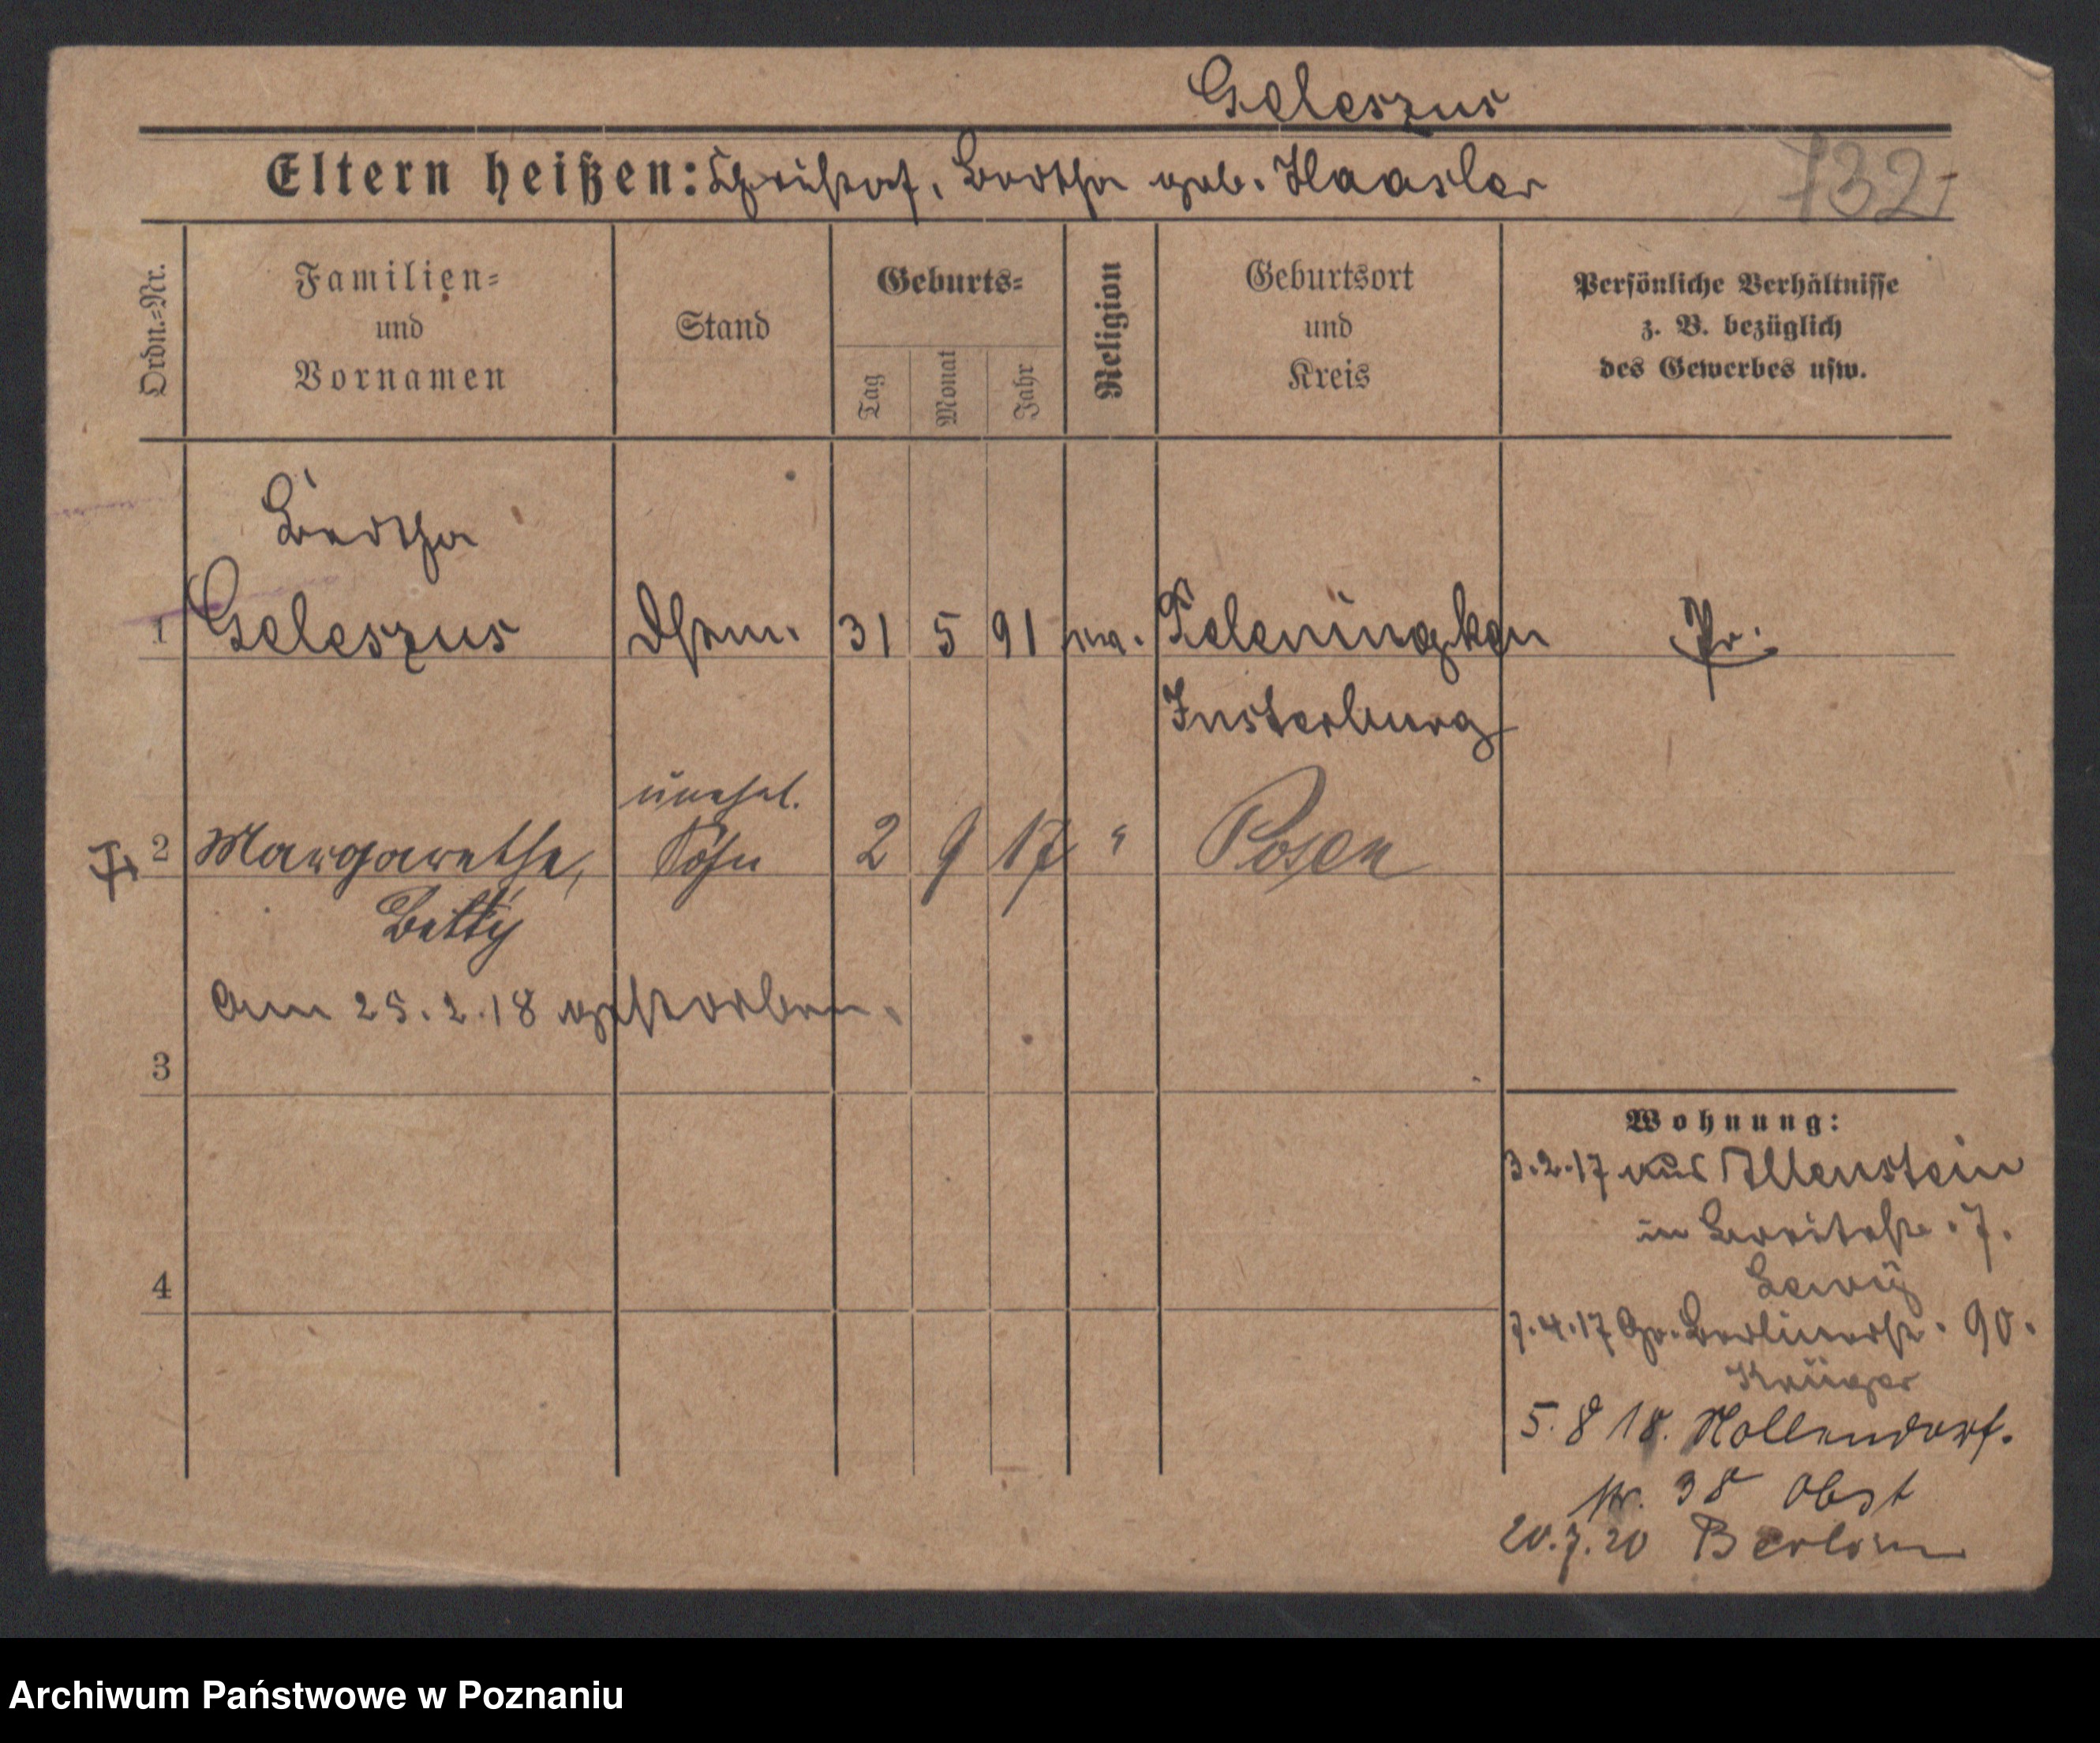 Geleszus
Eltern heißen: Christof, Bertha geb. Haasler
732
Ordn.=Nr.
Familien=
und
Vornamen
Stand
Geburts=
Tag
Monat
Jahr
Religion
Geburtsort
und
Kreis
Persönliche Verhältnisse
z. B. bezüglich
des Gewerbes usw.
Bertha
1 Geleszus 31 5 91 ev. Pr.
Insterburg
unehel.
2 Margarethe, 2 9 17 " Posen
Betty
Am 25.2.18 gestorben.
3
Wohnung:
3.2.17 aus Allenstein
in 7.
4
7.4.17 Gr. Berlinerstr. 90.
Krüger
5.8 18. Hollendorf.
str. 38 Obst
20.7.20 Berlin
Archiwum Państwowe w Poznaniu